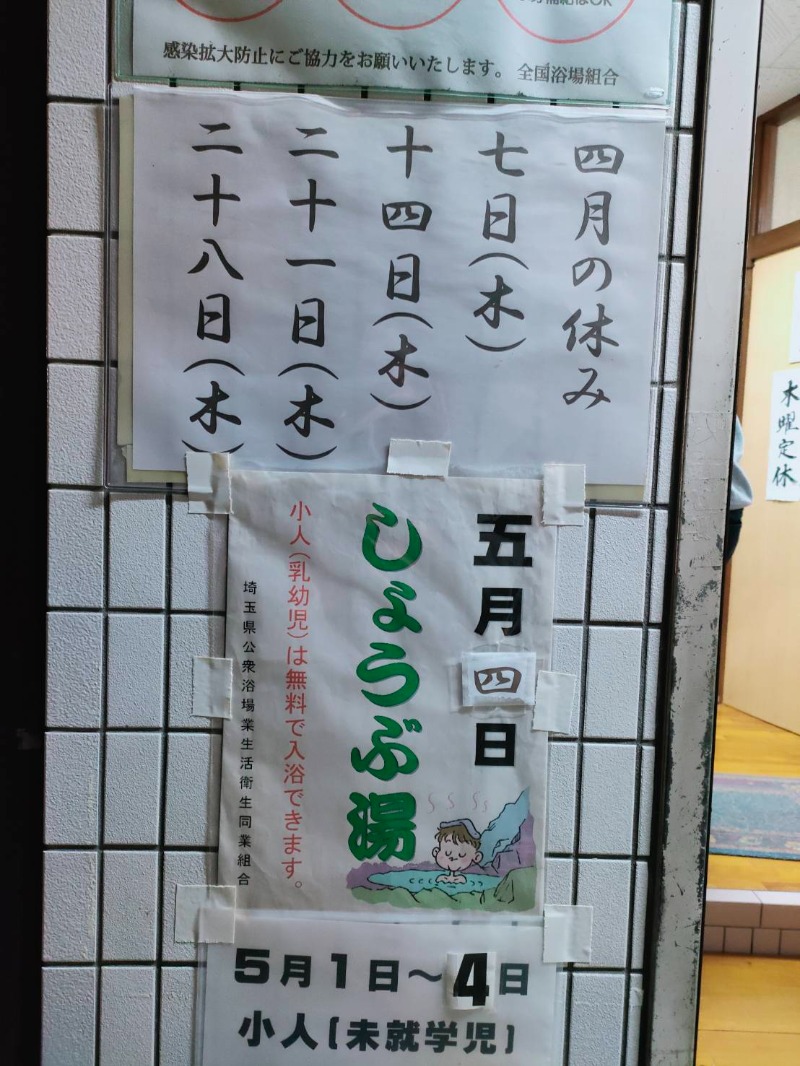 感染拡大防止にご協力をお願いいたします。 全国浴場組合
四月の休み
七日(木)
十四日(木)
二十一日(木)
二十八日(木)
木曜定休
五月四日
しょうぶ湯
小人(乳幼児)は無料で入浴できます。
埼玉県公衆浴場業生活衛生同業組合
5月1日～4日
小人(未就学児)